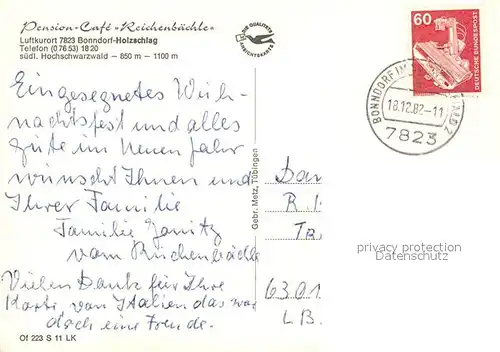 Pension-Café »Reichenbächle«
Luftkurort 7823 Bonndorf-Holzschlag
Telefon (07653) 1820
südl. Hochschwarzwald — 850 m — 1100 m
DIE QUALITÄTS
ANSICHTSKARTE
60
DEUTSCHE BUNDESPOST
BONNDORF IM
18.12.82-11
7823
Ein gesegnetes Weih-
nachtsfest und alles
Gute im Neuen Jahr
wünscht Ihnen und
Ihrer Familie
Familie
vom Reichenbächle
Vielen Dank für Ihre
Karte von Italien das war
doch eine Freude.
Gebr. Metz, Tübingen
R.
privacy protection
Datenschutz
6301
LB.
Of 223 S 11 LK